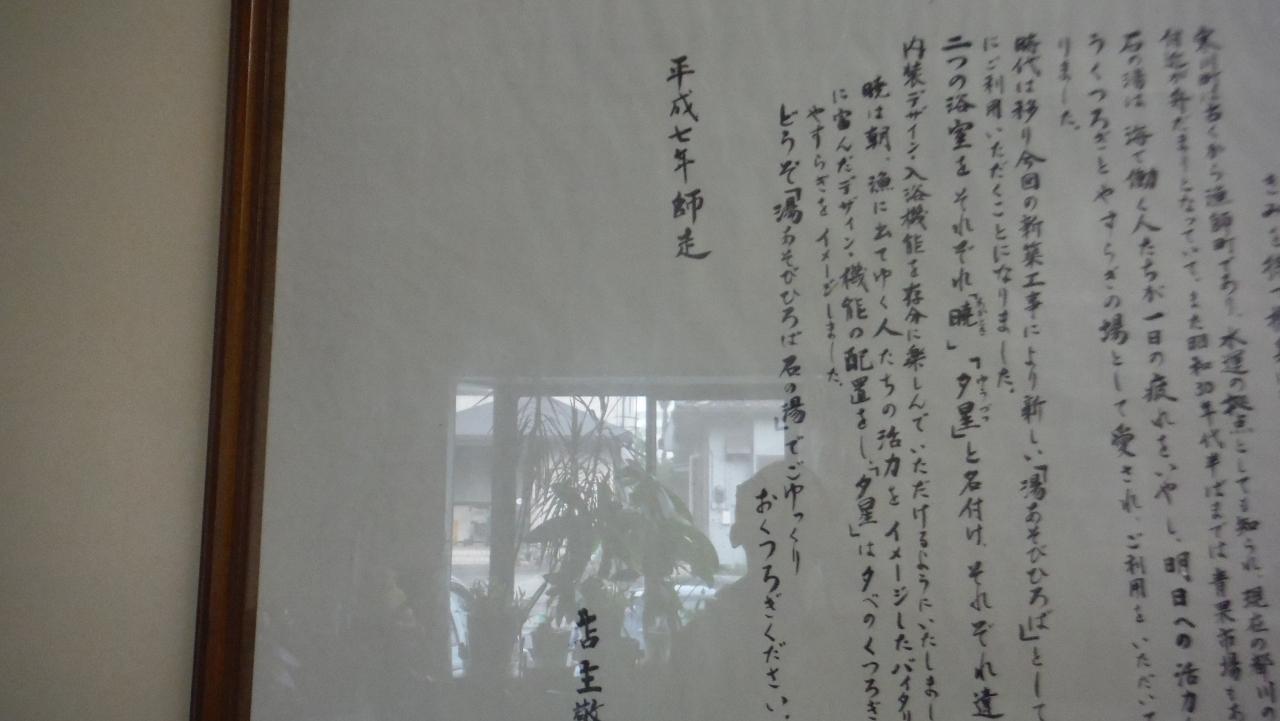 きみを待つ
寒川町は古くから漁師町であり、水運の拠点としても知られ、現在の都川の
付近が舟だまりとなっていて、また昭和30年代半ばまでは青果市場も
石の湯は、海で働く人たちが一日の疲れをいやし、明日への活力
うくつろぎとやすらぎの場として愛され、ご利用をいただいて
りました。
時代は移り今回の新築工事により新しい「湯あそびひろば」として
にご利用いただくことになりました。
二つの浴室をそれぞれ「暁」「夕星」と名付け、それぞれ違
あかとき
ゆうづつ
内装デザイン・入浴機能を存分に楽しんでいただけるようにいたしまし
暁は朝、漁に出てゆく人たちの活力をイメージしたバイタリ
に富んだデザイン・機能の配置をし、「夕星」は夕べのくつろぎ
やすらぎをイメージしました。
どうぞ「湯あそびひろば 石の湯」でごゆっくり
おくつろぎください。
平成七年師走
店主敬